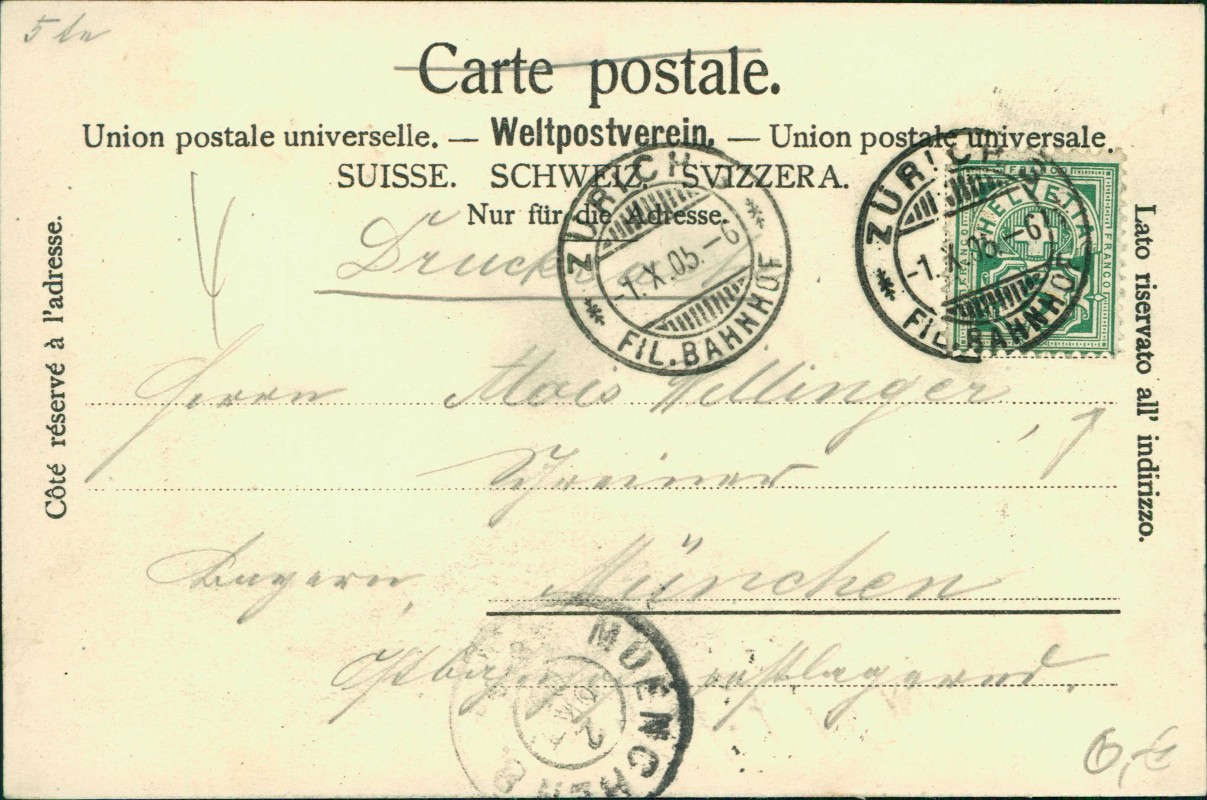 Carte postale.
Union postale universelle. — Weltpostverein. — Union postale universale.
SUISSE. SCHWEIZ. SVIZZERA.
Nur für die Adresse.
Côté réservé à l'adresse.
Lato riservato all' indirizzo.
ZÜRICH
-1.X.05.-6
FIL. BAHNHOF
ZÜRICH
-1.X.05.-6
FIL. BAHNHOF
HELVETIA
FRANCO
FRANCO
Herrn Alois
Schreiner
Bayern, München
postlagernd.
MUENCHEN
2
6,€